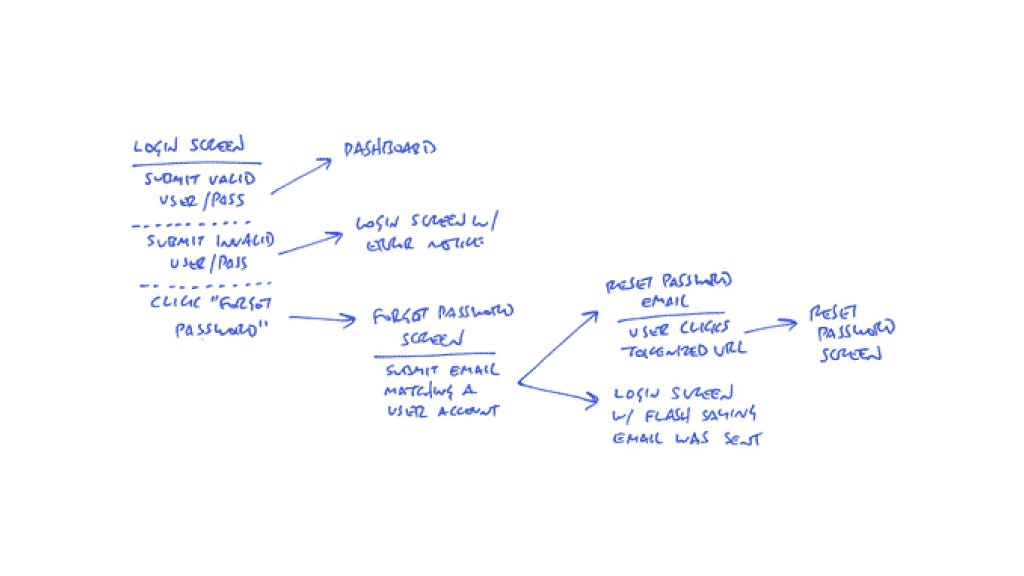 LOGIN SCREEN
SUBMIT VALID
USER/PASS
SUBMIT INVALID
USER/PASS
CLICK "FORGOT
PASSWORD"
DASHBOARD
LOGIN SCREEN W/
ERROR NOTICE
FORGOT PASSWORD
SCREEN
SUBMIT EMAIL
MATCHING A
USER ACCOUNT
RESET PASSWORD
EMAIL
USER CLICKS
TOKENIZED URL
LOGIN SCREEN
W/ FLASH SAYING
EMAIL WAS SENT
RESET
PASSWORD
SCREEN